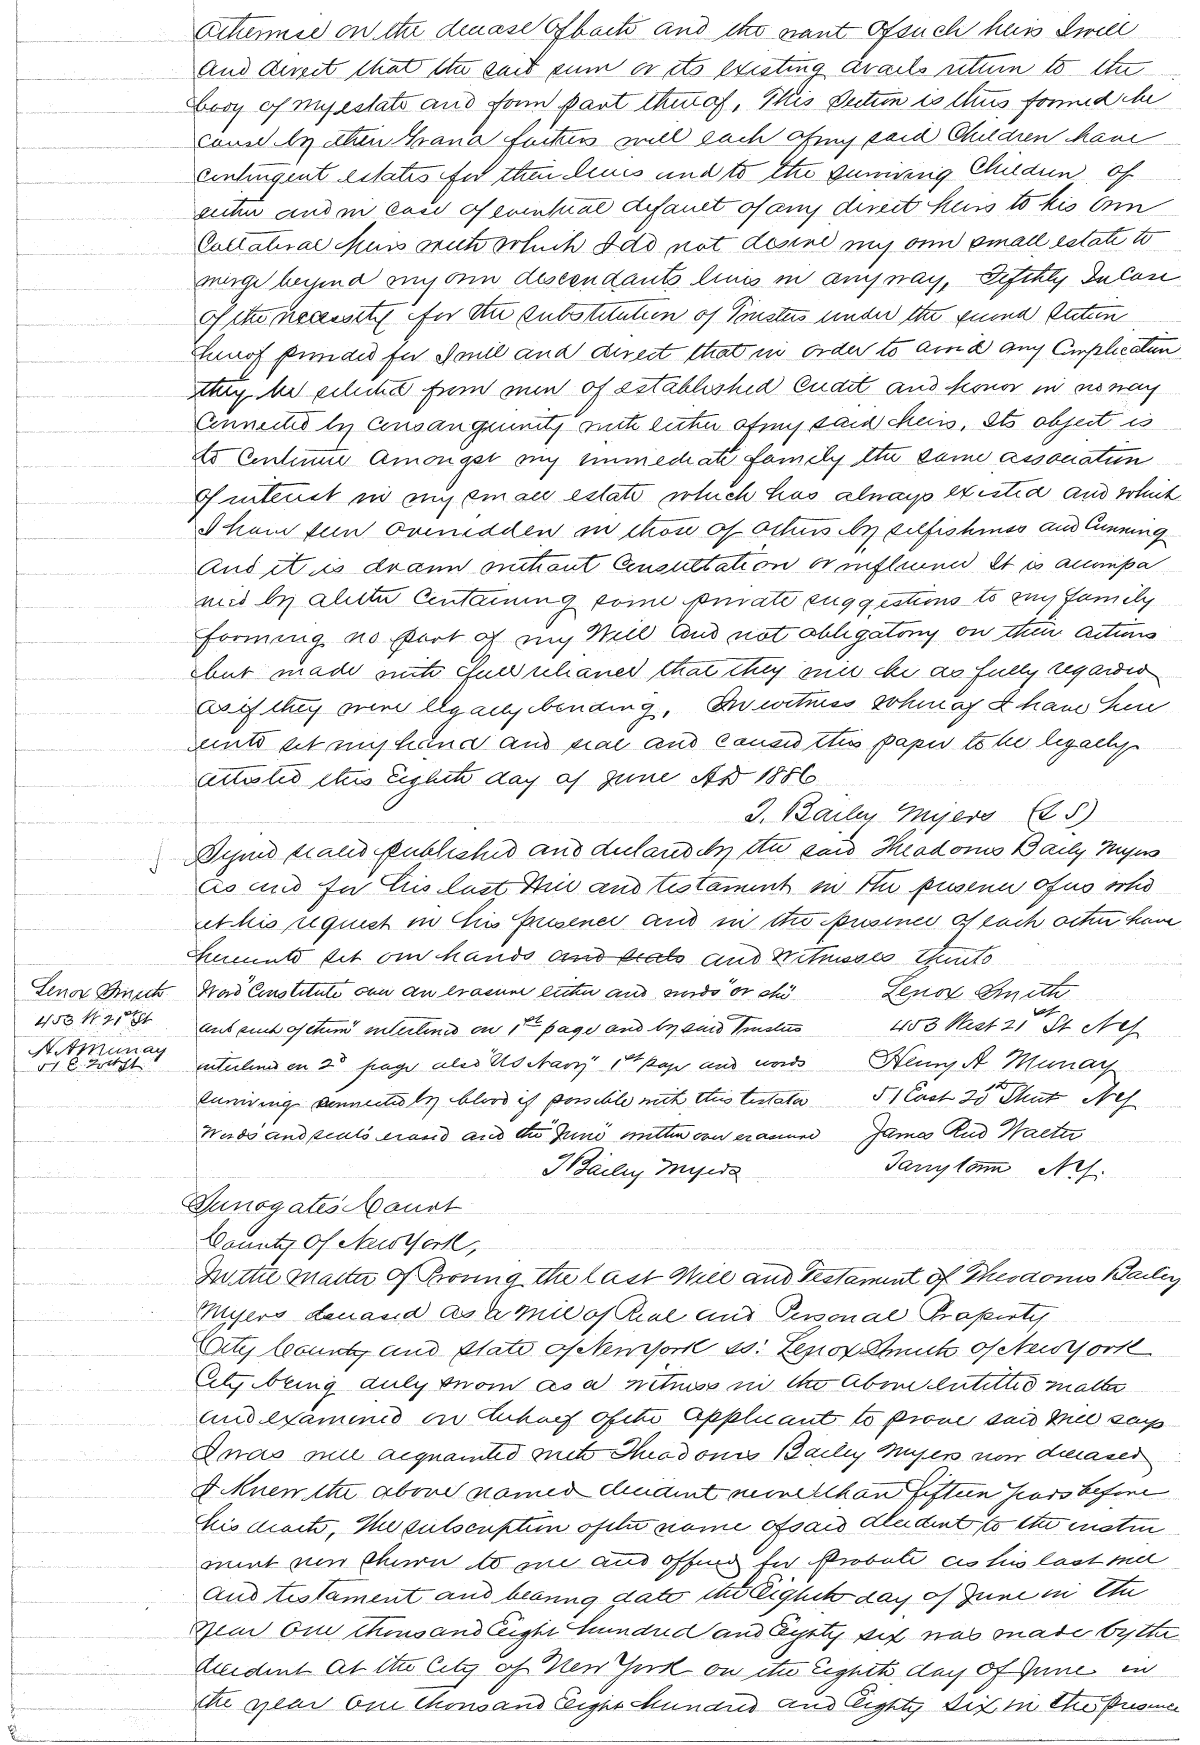 otherwise on the decease of both and the want of such heirs I will
and direct that the said sum or its existing avails return to the
body of my estate and form part thereof, This Section is thus formed be
cause by their Grand fathers will each of my said Children have
contingent estates for their lives and to the surviving Children of
either and in case of eventual default of any direct heirs to his own
Collateral heirs with which I do not desire my own small estate to
merge beyond my own descendants lives in any way, Fifthly In Case
of the necessity for the substitution of Trustees under the second Section
hereof provided for I will and direct that in order to avoid any Complication
they be selected from men of established Credit and honor in no way
Connected by Consanguinity with either of my said heirs, Its object is
to Continue Amongst my immediate family the same association
of interest in my small estate which has always existed and which
I have seen overridden in those of others by selfishness and Cunning
and it is drawn without Consultation or influence It is accompa
nied by a letter Containing some private suggestions to my family
forming no part of my Will and not obligatory on their actions
but made with full reliance that they will be as fully regarded
as if they were legally binding, In witness whereof I have here
unto set my hand and seal and caused this paper to be legally
attested this Eighth day of June AD 1886
T. Bailey Myers (L S)
Signed sealed published and declared by the said Theodorus Baily Myers
as and for his last Will and testament in the presence of us who
at his request in his presence and in the presence of each other have
hereunto set our hands and seals and Witnesses thereto
Lenox Smith
453 W 21st St
H A Murray
51 E. 20th St
Word "Constitute over an erasure either and words "or the
interlined on 1st page and by said Trustees
interlined on 2d page also "US Navy" 1st page and words
surviving connected by blood if possible with this testator
Words "and seals erased and the "June" written over erasure
T Bailey Myers
Lenox Smith
453 West 21st St NY
Henry A Murray
51 East 20th Street NY
James Reid Walter
Tarrytown NY.
Surrogate's Court
County of New York,
In the Matter of Proving the last Will and Testament of Theodorus Bailey
Myers deceased as a Will of Real and Personal Property
City County and State of New York ss: Lenox Smith of New York
City being duly sworn as a witness in the above entitled matter
and examined on behalf of the Applicant to prove said Will says
I was well acquainted with Theodorus Bailey Myers now deceased
I knew the above named decedent more than fifteen years before
his death, The subscription of the name of said decedent to the instru
ment now shown to me and offered for Probate as his last will
and testament and bearing date the Eighth day of June in the
year One thousand Eight hundred and Eighty six was made by the
decedent at the City of New York on the Eighth day of June in
the year One thousand Eight hundred and Eighty Six in the presence